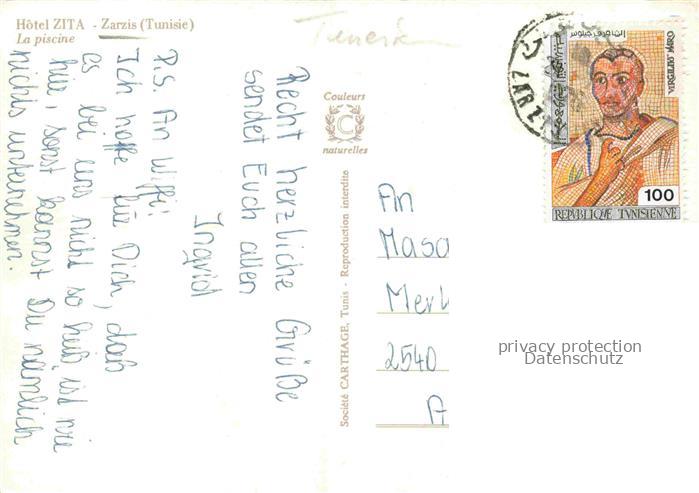 Hôtel ZITA - Zarzis (Tunisie)
La piscine
Tunesien
Recht herzliche Grüße
sendet Euch allen
Ingrid
P.S. An Wiffi:
Ich hoffe für Dich, daß
es bei uns nicht so heiß ist wie
hier, sonst kannst Du nämlich
nichts unternehmen.
Couleurs
C
naturelles
Société CARTHAGE, Tunis - Reproduction interdite
An
Merl
2540
A
ZARZ
VIRGILIUS MARO
100
REPUBLIQUE TUNISIENNE
privacy protection
Datenschutz